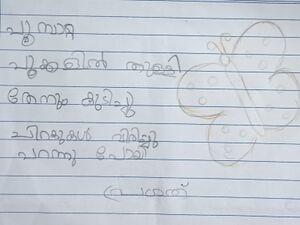 പൂമ്പാറ്റ
പൂക്കളിൽ തുള്ളി
തേനും കുടിച്ചു
ചിറകുകൾ വിരിച്ചു
പറന്നു പോയി